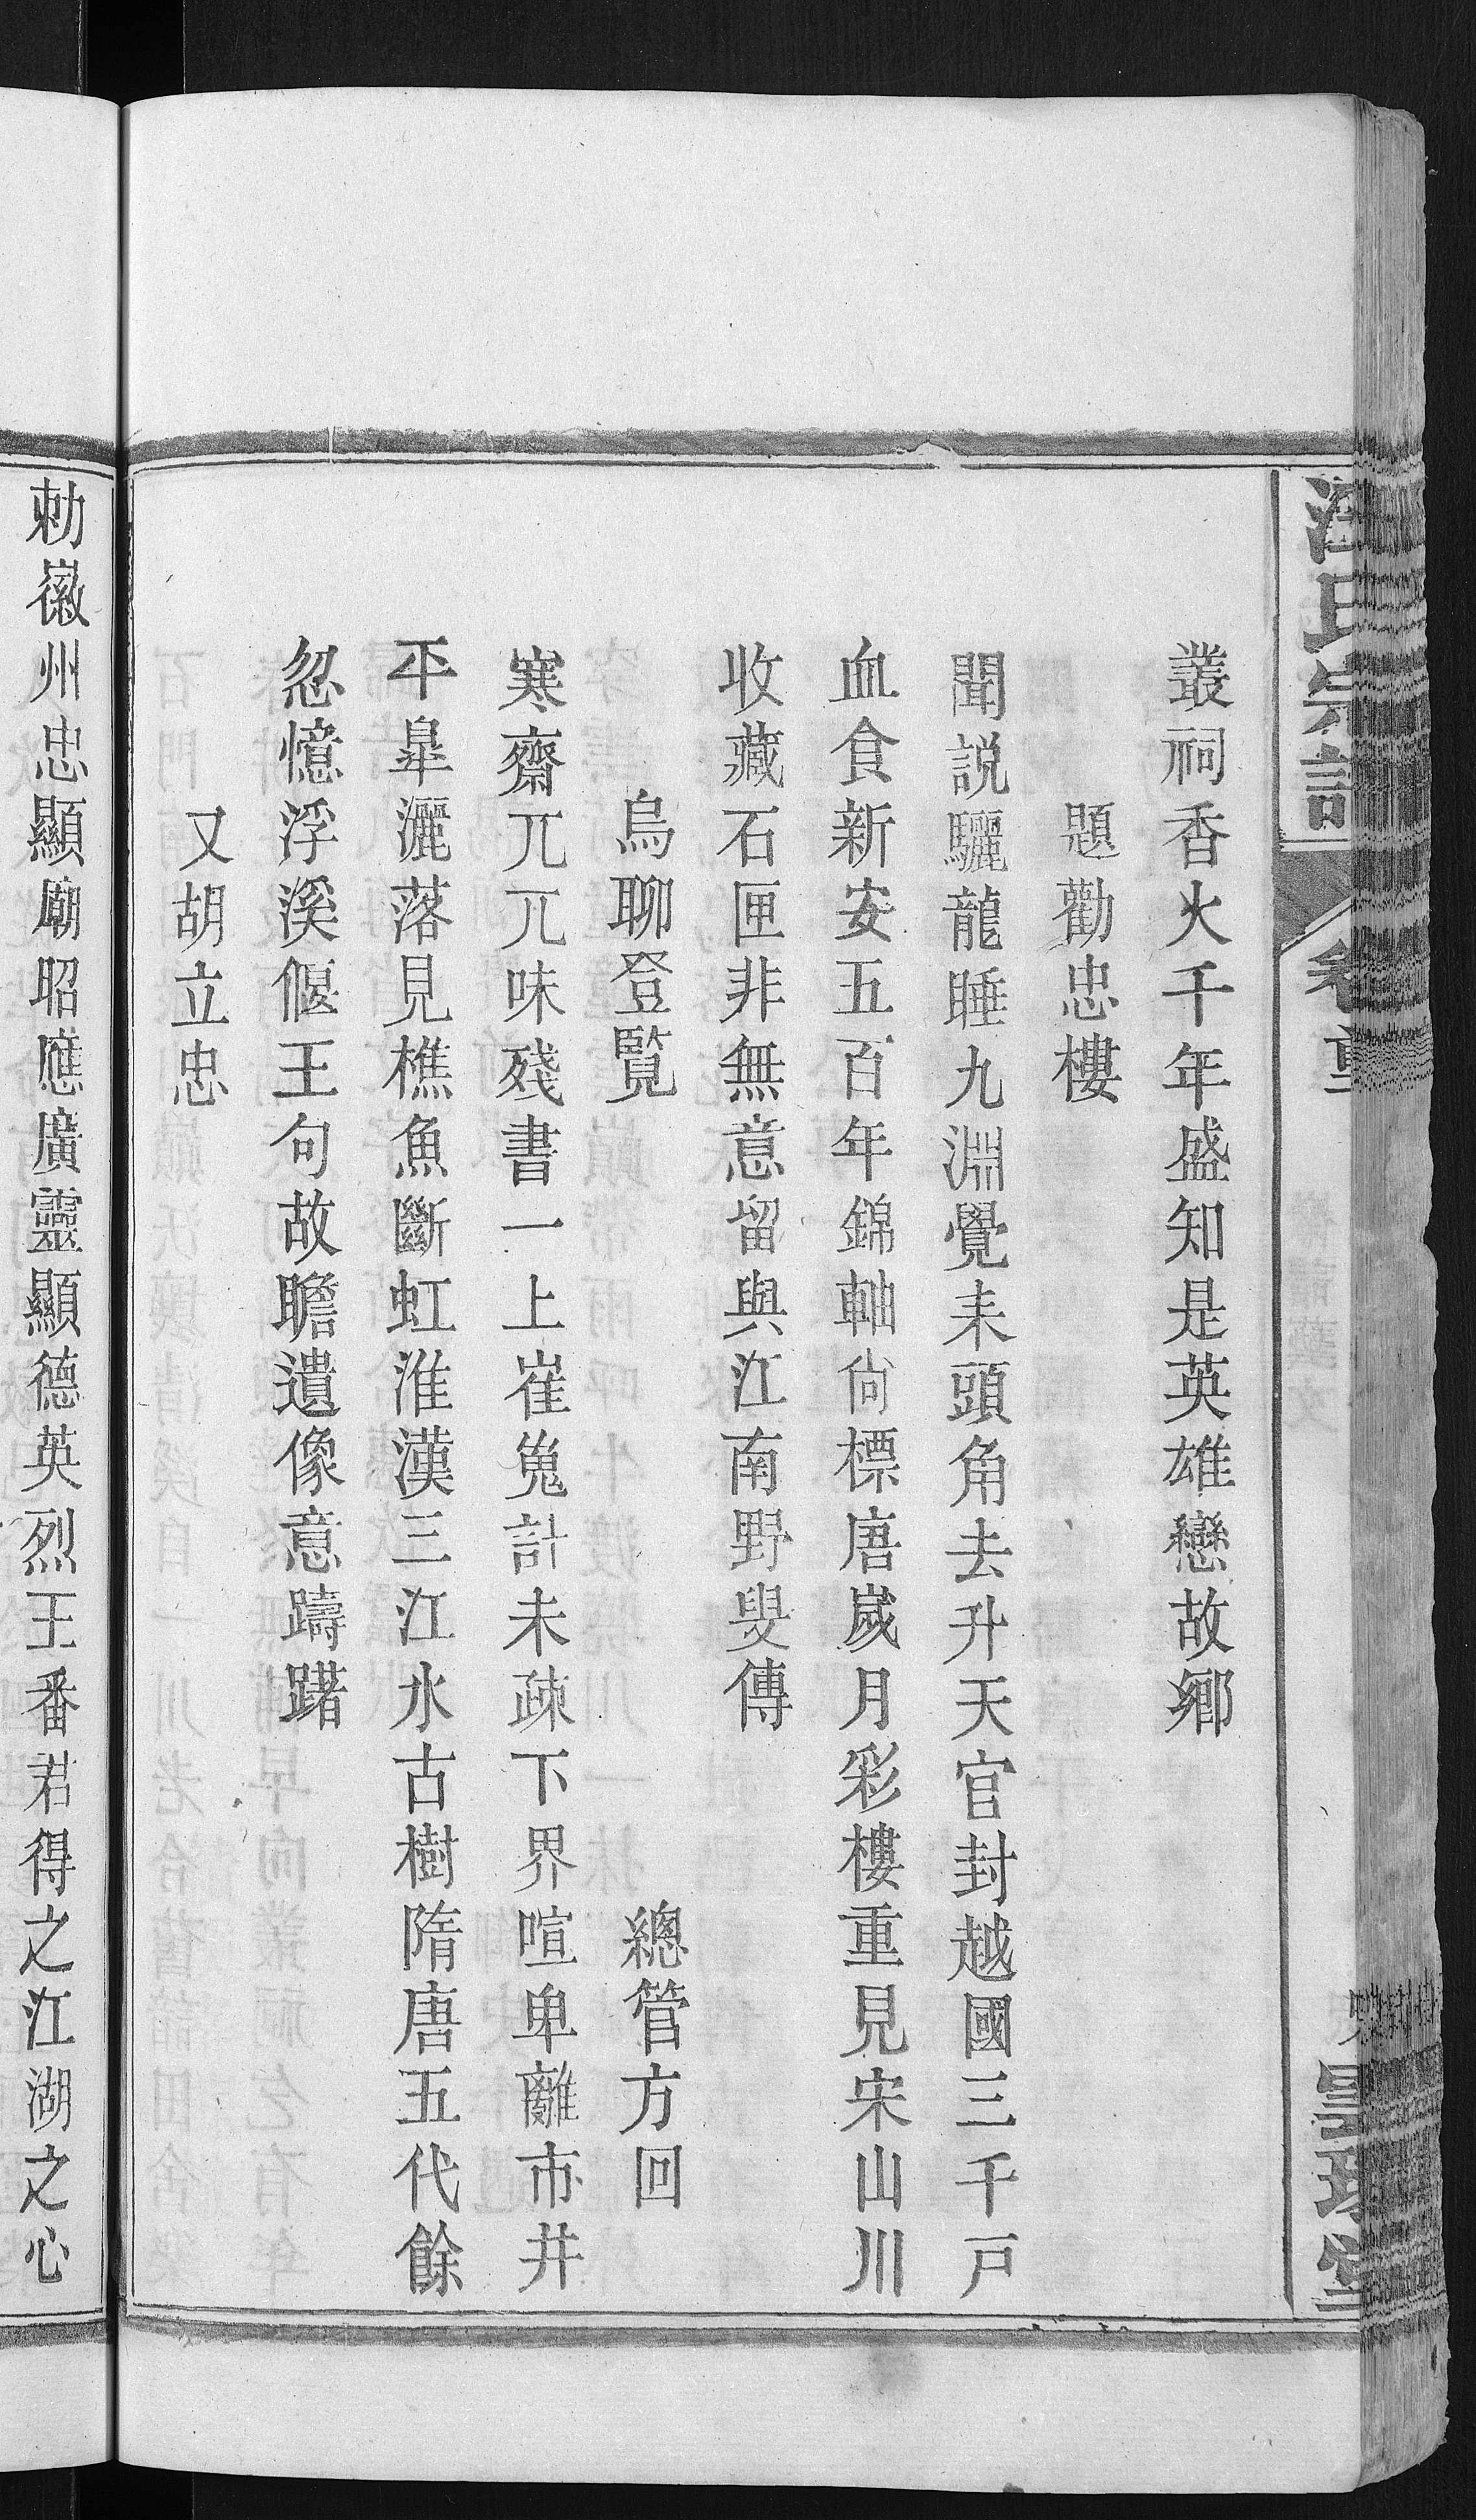 汪氏宗譜
叢祠香火千年盛知是英雄戀故鄉
題勸忠樓
聞説驪龍睡九淵覺来頭角去升天官封越國三千戸
血食新安五百年錦軸尚標唐嵗月彩樓重見宋山川
收藏石匣非無意留與江南野叟傳
烏聊登覽 總管方回
寒齋兀兀味殘書一上崔嵬計未疎下界喧卑離市井
平臯灑落見樵魚斷虹淮漢三江水古樹隋唐五代餘
忽憶浮溪偃王句故瞻遺像意躊躇
又胡立忠
勅徽州忠顯廟昭應廣靈顯德英烈王番君得之江湖之心